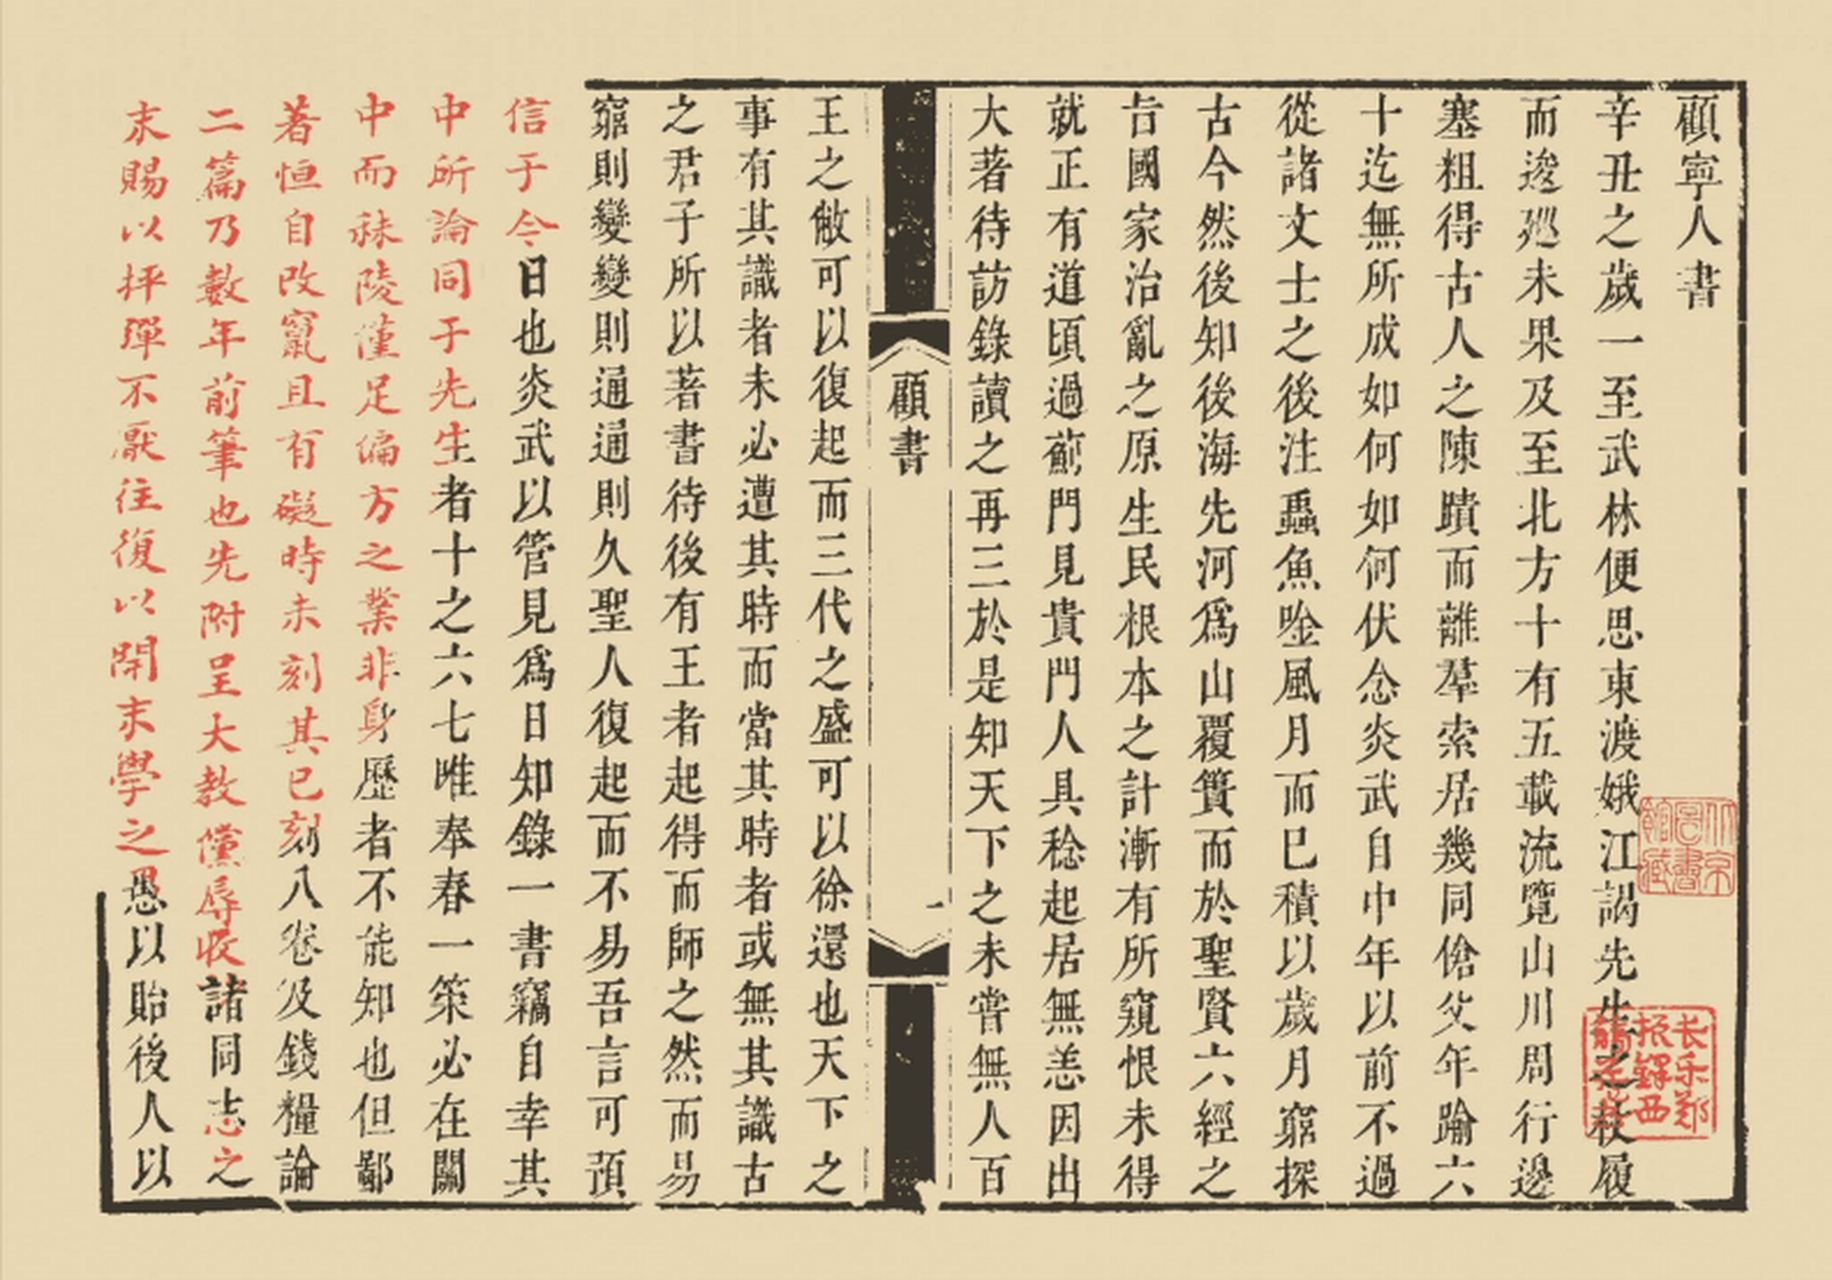 顧寧人書
辛丑之歲一至武林便思東渡娥江謁先生之杖履
而逡廵未果及至北方十有五載流覽山川周行邊
塞粗得古人之陳蹟而離羣索居幾同傖父年踰六
十迄無所成如何如何伏念炎武自中年以前不過
從諸文士之後注蟲魚唫風月而已積以歲月窮探
古今然後知後海先河爲山覆簣而於聖賢六經之
旨國家治亂之原生民根本之計漸有所窺恨未得
就正有道頃過薊門見貴門人具稔起居無恙因出
大著待訪錄讀之再三於是知天下之未嘗無人百
顧書
一
王之敝可以復起而三代之盛可以徐還也天下之
事有其識者未必遭其時而當其時者或無其識古
之君子所以著書待後有王者起得而師之然而易
窮則變變則通通則久聖人復起而不易吾言可預
信于今日也炎武以管見爲日知錄一書竊自幸其
中所論同于先生者十之六七唯奉春一策必在關
中而秣陵僅足偏方之業非身歷者不能知也但鄙
著恒自改竄且有礙時未刻其已刻八卷及錢糧論
二篇乃數年前筆也先附呈大教儻辱收諸同志之
末賜以抨彈不厭往復以開末學之愚以貽後人以
北京圖書館藏
長乐郑振鐸西諦